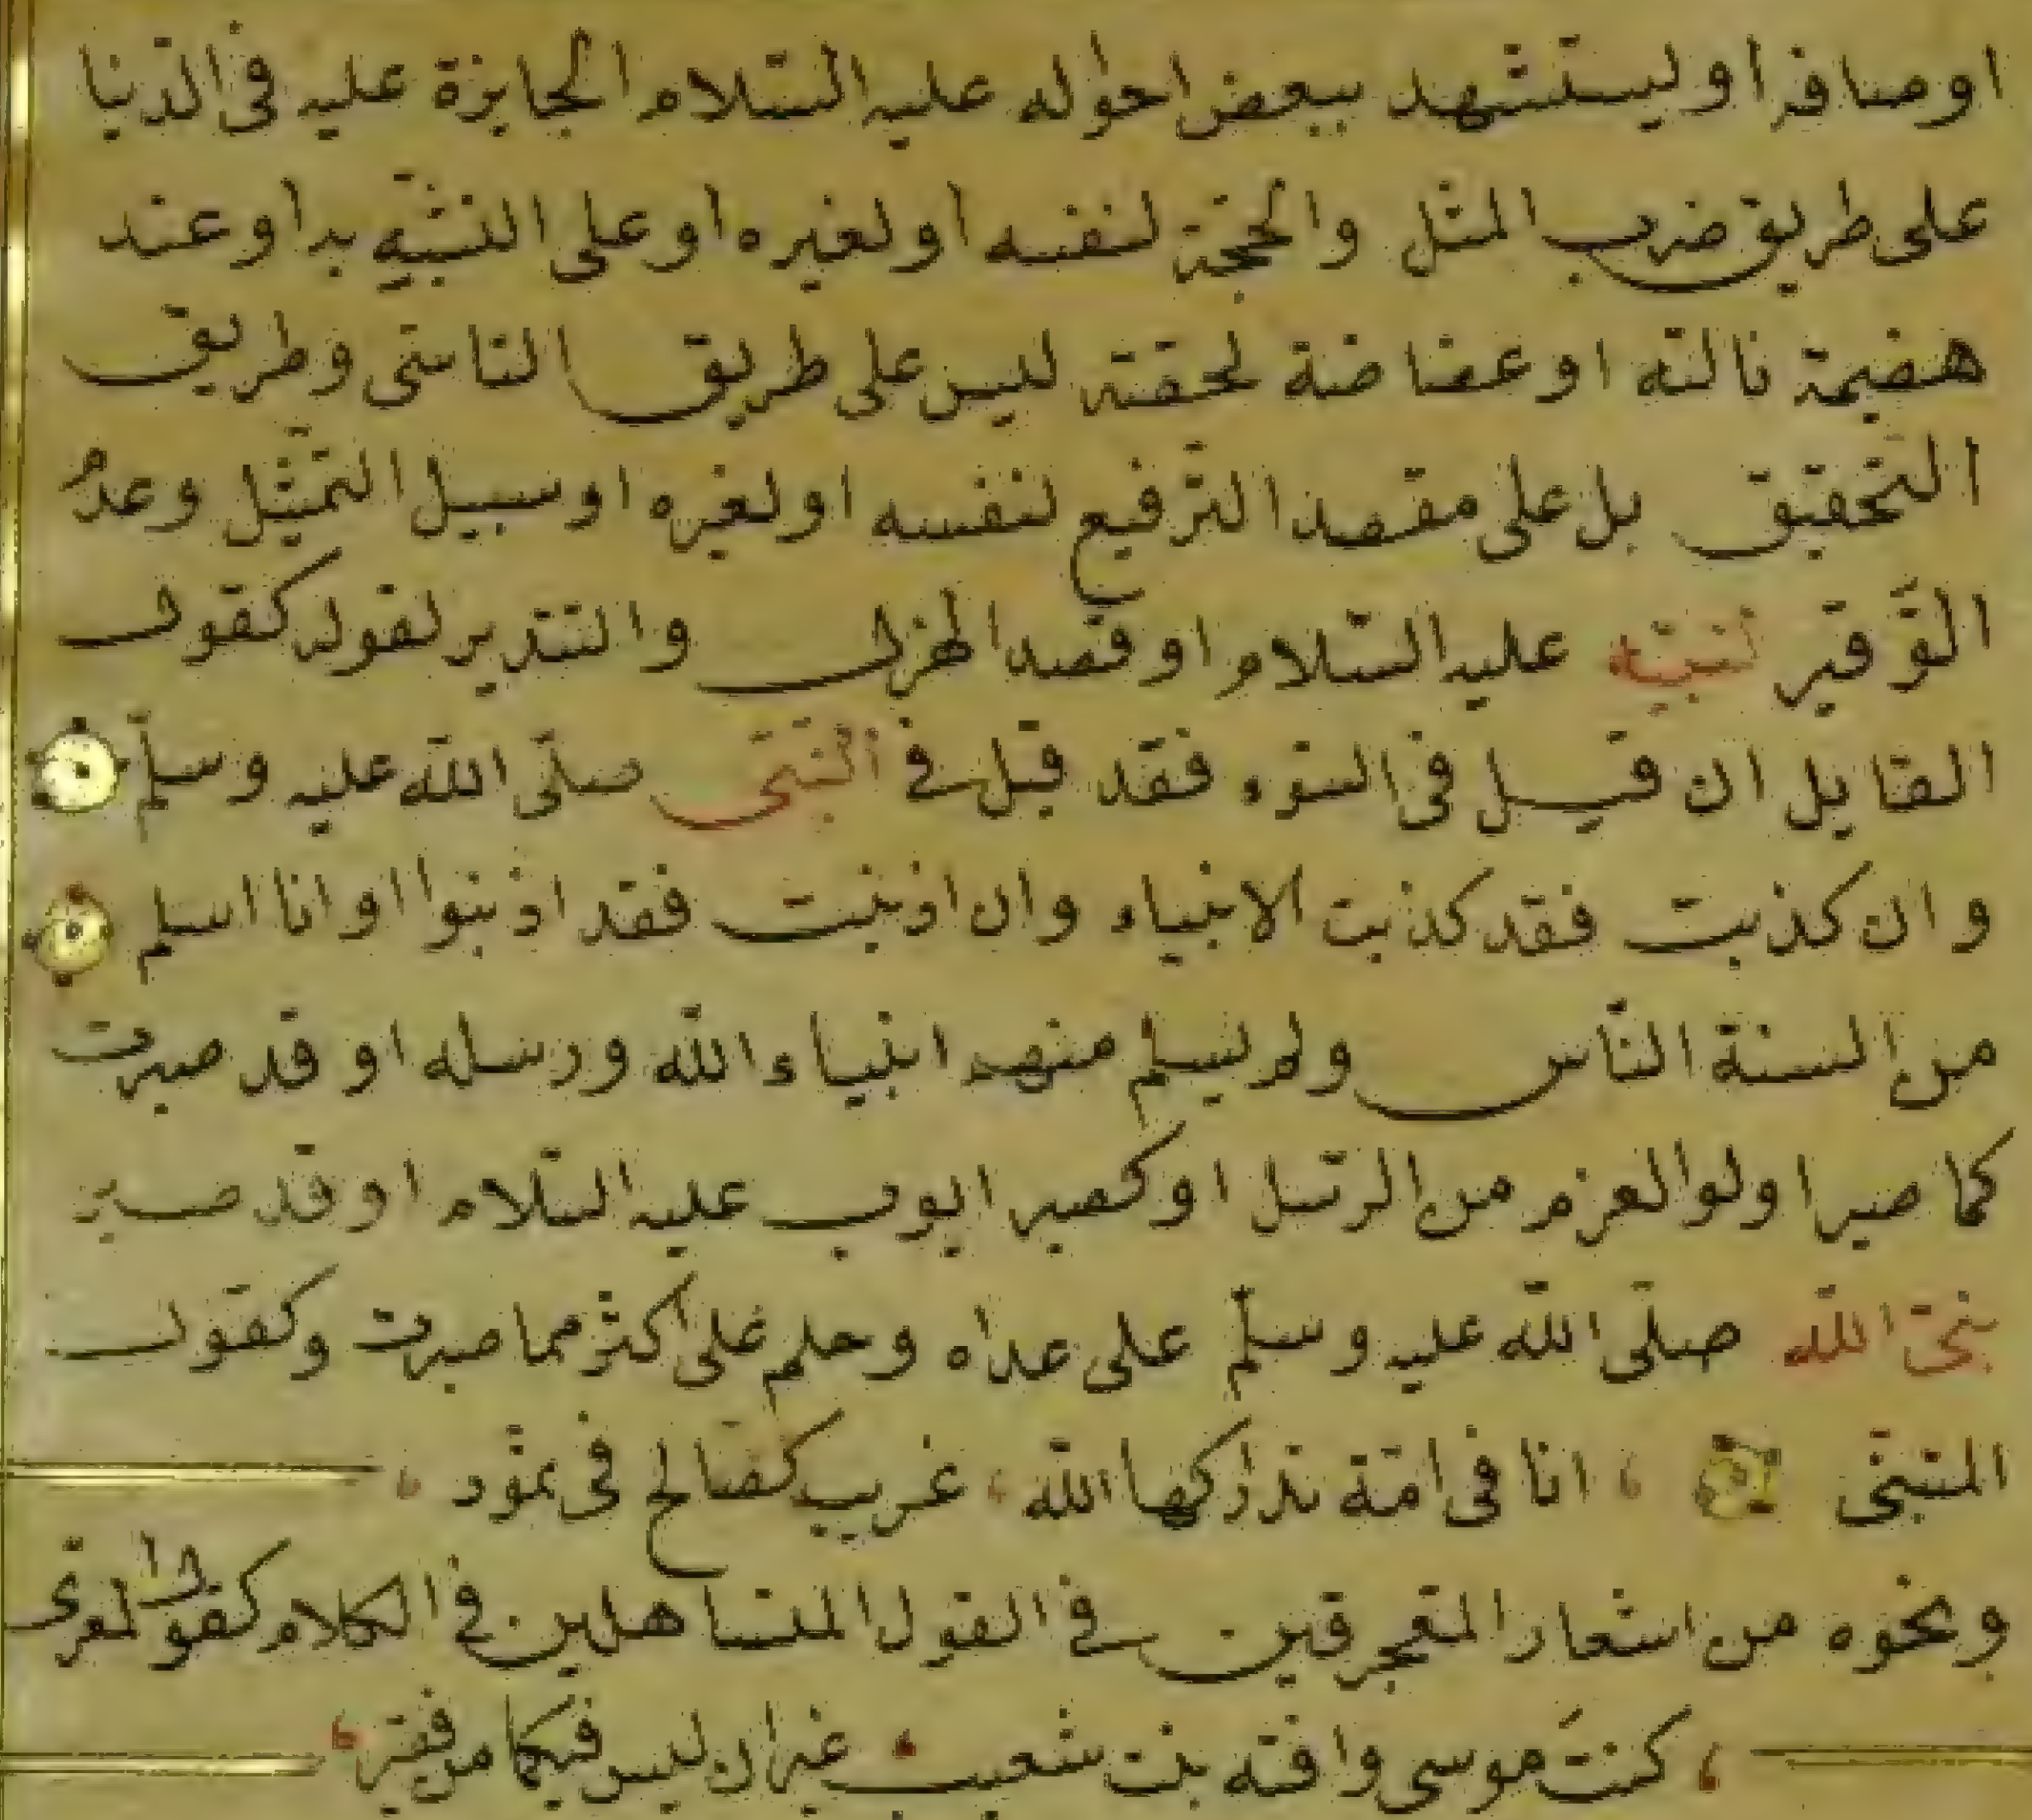 او صافه او ليستشهد ببعض احواله عليه السّلام الجايزة عليه فى الدّنيا
على طريق ضرب المثل والحجّة لنفسه او لغيره او على التشبّه به او عند
هضيمة نالته او عضاضة لحقته ليس على طريق التاسّى وطريق
التّحقيق بل على مقصد التّرفيع لنفسه او لغيره او سبيل التّمثيل وعدم
التّوقير لنبيّه عليه السّلام او قصد الهزل والتندير لقوله كقول
القايل ان قيل فى السّوء فقد قيل فى النّبىّ صلّى اللّه عليه وسلّم
وان كذبت فقد كذبت الانبياء وان اذنبت فقد اذنبوا او انا اسلم
من السنة النّاس ولم يسلم منهم انبياء اللّه ورسله او قد صبرت
كما صبر اولوا العزم من الرّسل او كصبر ايوب عليه السّلام او قد صبر
نبىّ اللّه صلّى اللّه عليه وسلّم على عداه وحلم على اكثر مما صبرت وكقول
المتنبّى انا فى امّة تداركها اللّه غريب كصالح فى ثمود
ونحوه من اشعار المتعجرفين فى القول المتساهلين فى الكلام كقول المعرّى
كنتَ موسى وافته بنت شعيب غير ان ليس فيكما من فقير